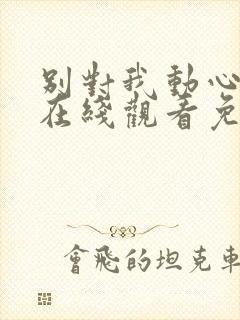 別對我動心
在綫觀看免
會飛的坦克車